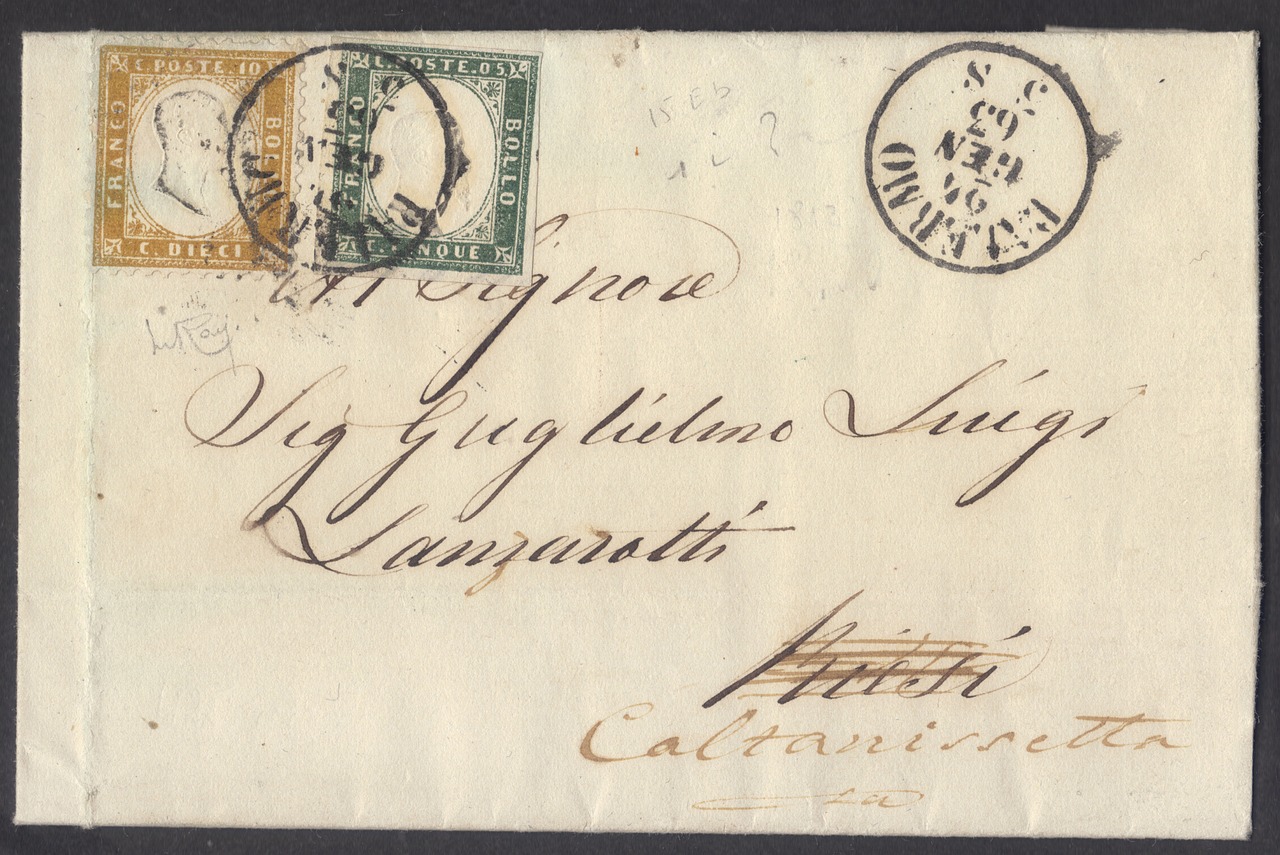 C. POSTE. 10
FRANCO
BOLLO
C. DIECI
C. POSTE. 05
FRANCO
BOLLO
C. CINQUE
PALERMO
GEN
63
PALERMO
24
GEN
63
3. S
15 Eb
Al Signore
Sig Guglielmo Luigi
Lanzarotti
Riesi
Caltanissetta